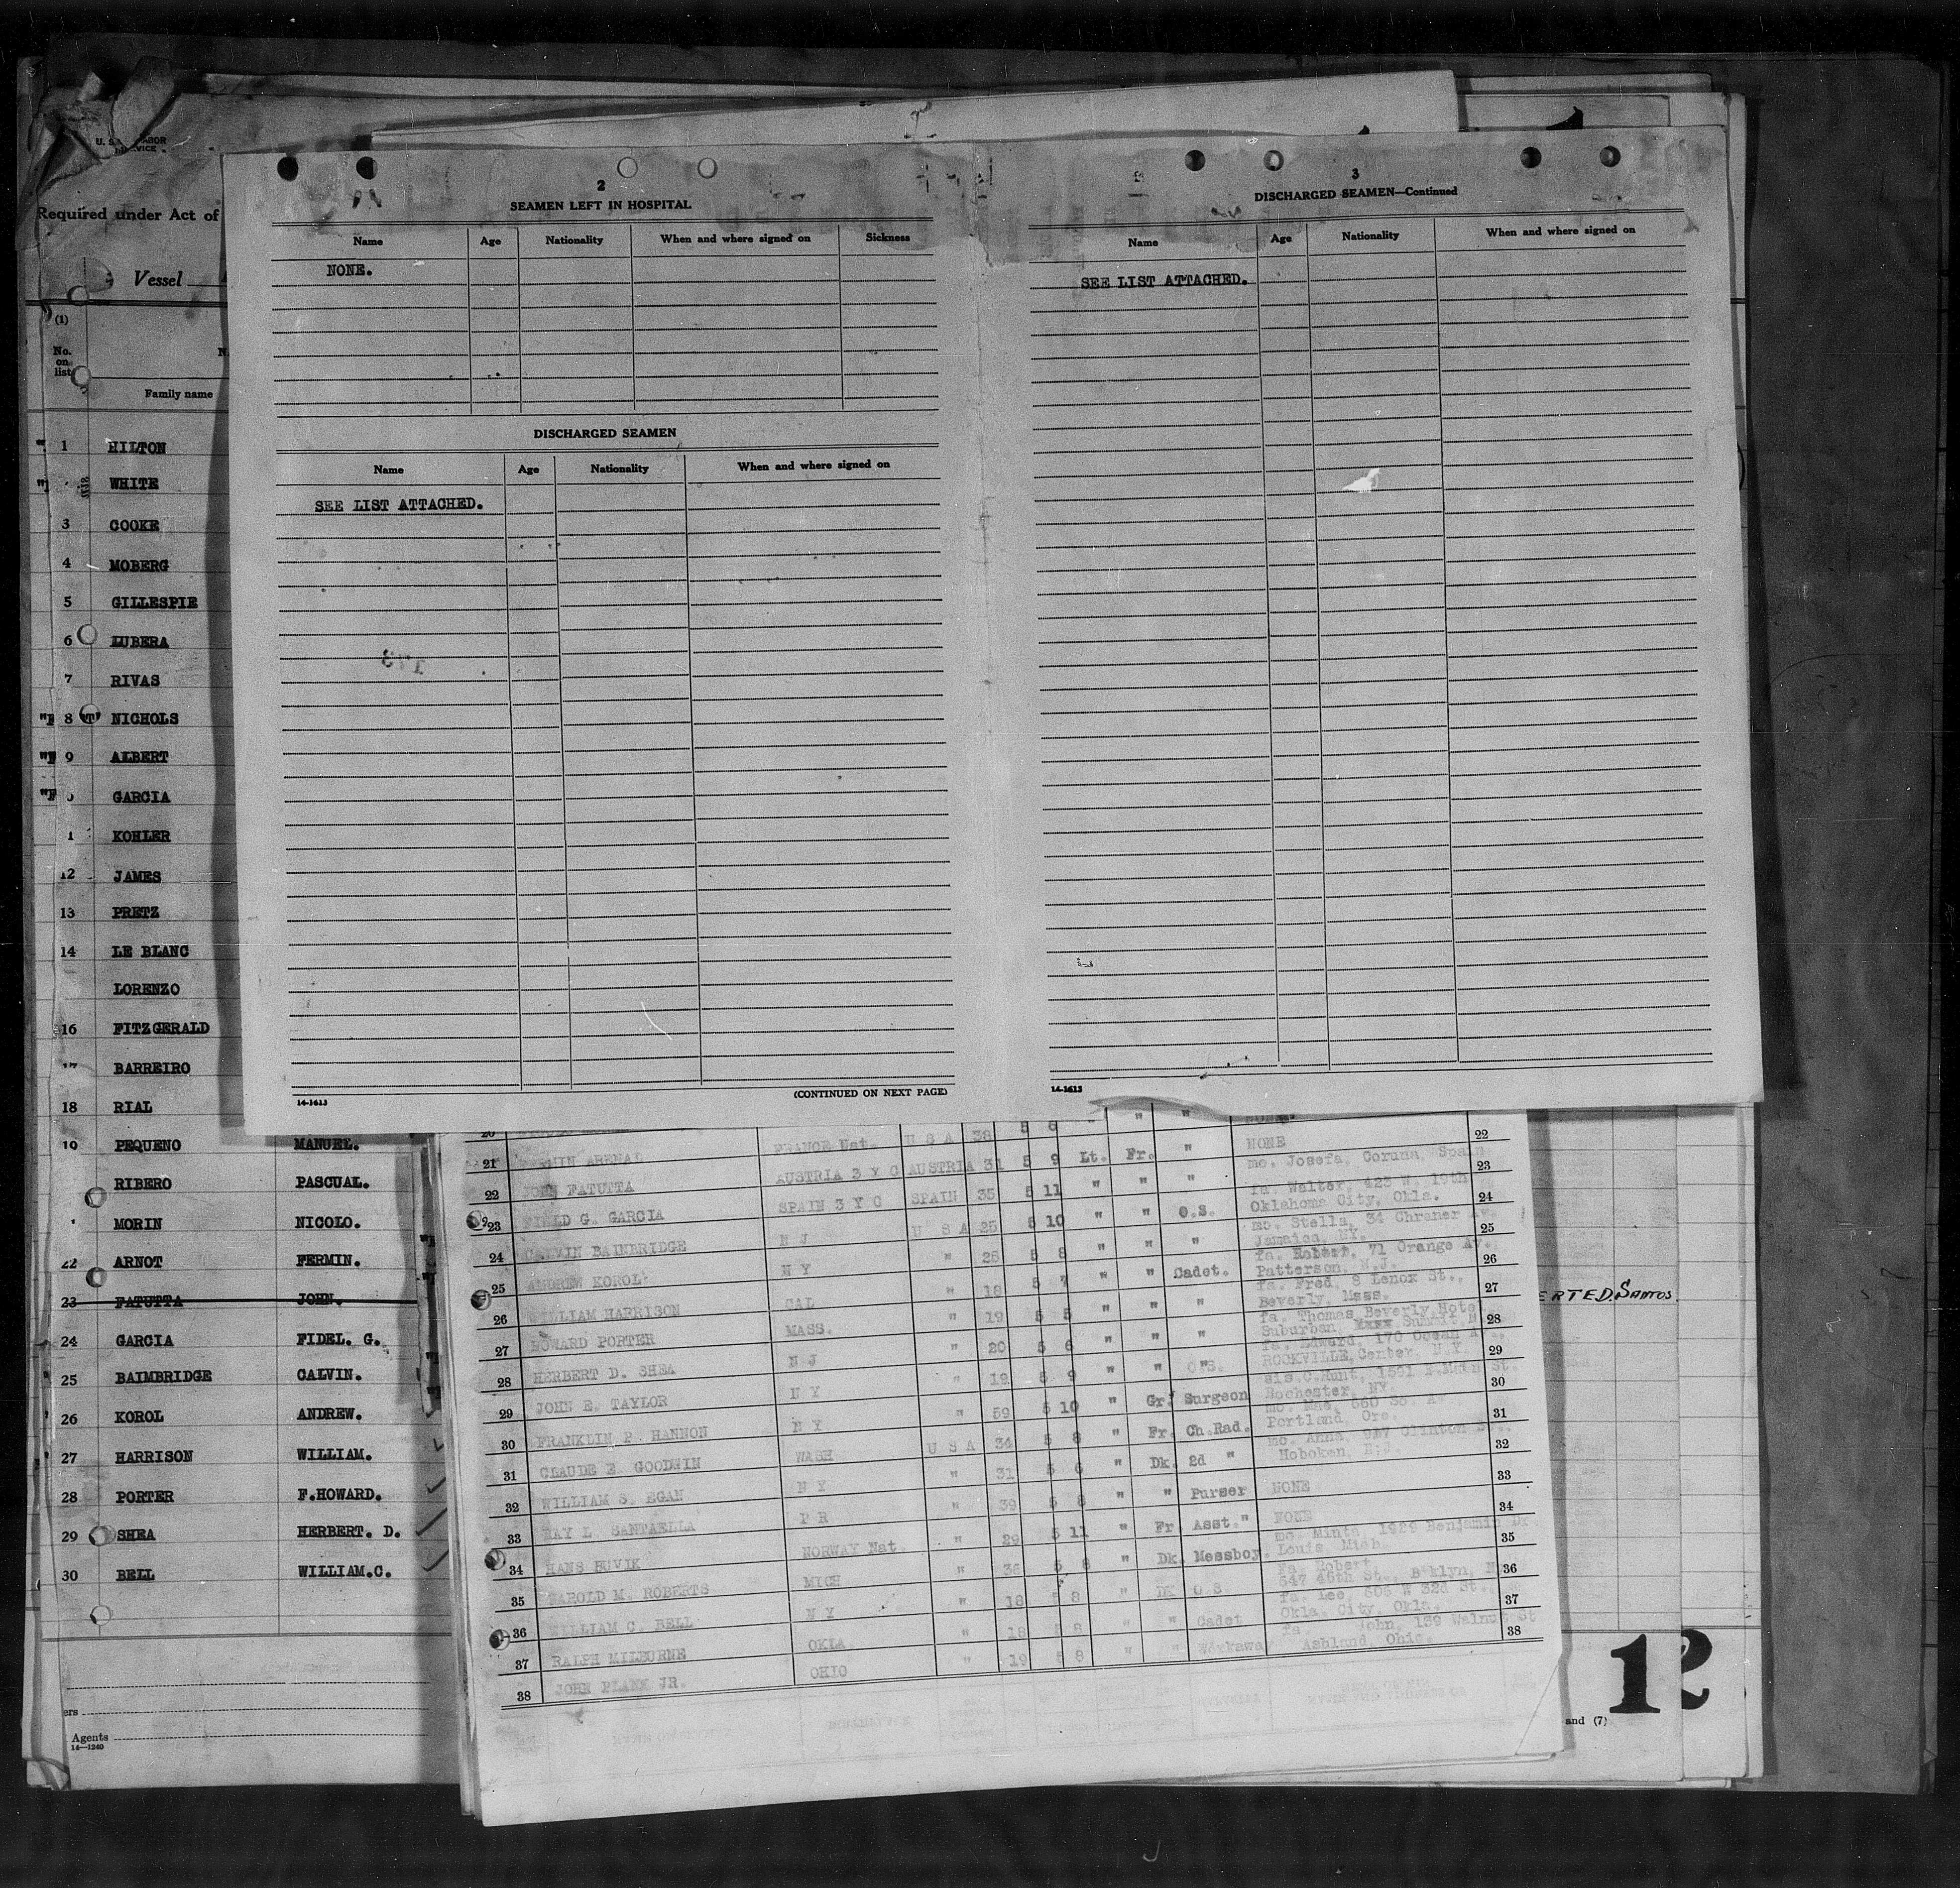 Required under Act of
Vessel
(1)
No. on list
Family name
1 HILTON
WHITE
3 COOKE
4 MOBERG
5 GILLESPIE
6 LUBERA
7 RIVAS
8 "T" NICHOLS
9 ALBERT
GARCIA
KOHLER
12 JAMES
13 PRETZ
14 LE BLANC
LORENZO
16 FITZGERALD
BARREIRO
18 RIAL
PEQUENO MANUEL.
RIBERO PASCUAL.
MORIN NICOLO.
22 ARNOT FERMIN.
23 FATUTTA JOHN.
24 GARCIA FIDEL. G.
25 BAIMBRIDGE CALVIN.
26 KOROL ANDREW.
27 HARRISON WILLIAM.
28 PORTER F.HOWARD.
29 SHEA HERBERT. D.
30 BELL WILLIAM.C.
Agents
14—1240
2
SEAMEN LEFT IN HOSPITAL
Name Age Nationality When and where signed on Sickness
NONE.
DISCHARGED SEAMEN
Name Age Nationality When and where signed on
SEE LIST ATTACHED.
14-1613 (CONTINUED ON NEXT PAGE)
3
DISCHARGED SEAMEN—Continued
Name Age Nationality When and where signed on
SEE LIST ATTACHED.
14-1613
FRANCE Nat. U S A 38 5 8 " " " NONE. 22
21 ARENAL AUSTRIA 3 Y O AUSTRIA 31 5 9 Lt. Fr. " NONE
22 JOHN FATUTTA SPAIN 3 Y O SPAIN 35 5 11 " " " mo. Josefa, Coruna, Spain 23
23 FIELD G. GARCIA N J U S A 25 5 10 " " O.S. fa. Walter, 423 W. 19th Oklahoma City, Okla. 24
24 CALVIN BAINBRIDGE N Y " 26 5 8 " " " mo. Stella, 34 Jamaica, NY. 25
25 ANDREW KOROL CAL " 18 5 7 " " Cadet. fa. Robert, 71 Orange Av. Patterson, N.J. 26
26 WILLIAM HARRISON MASS. " 19 5 5 " " " fa. Fred, 8 Lenox St., Beverly, Mass. 27
27 HOWARD PORTER N J " 20 5 6 " " " fa. Thomas, Beverly Hotel, Suburban, Summit, N 28
28 HERBERT D. SHEA N Y " 19 5 9 " " O.S. fa. Edward, 170 Ocean ROCKVILLE, Center, N.Y. 29
29 JOHN E. TAYLOR N Y " 59 5 10 " Gr. Surgeon sis.C.Hunt, 1591 E.Main St. Rochester, NY. 30
30 FRANKLIN P. HANNON WASH U S A 34 5 8 " Fr. Ch.Rad. mo. Mae, 660 Portland, Ore. 31
31 CLAUDE E. GOODWIN N Y " 31 5 6 " Dk. 2d " mo. Anna, Clinton Hoboken, 32
32 WILLIAM S. EGAN P R " 39 5 8 " " Purser NONE 33
33 RAY L. SANTAELLA NORWAY Nat. " 29 5 11 " Fr. Asst." NONE 34
34 HANS MICH " 36 5 8 " Dk. Messboy. mo. Minta, 1929 Benjamin Dr. Louis, Mich. 35
35 HAROLD M. ROBERTS N Y " 18 5 8 " DK O.S. fa. Robert, 647 46th St., B'klyn, N 36
36 WILLIAM C. BELL OKLA " 18 5 8 " " Cadet fa. Lee, 606 W 32d St., Okla. City, Okla. 37
37 RALPH MILBURNE OHIO " 19 5 8 " " Workaway fa. John, 139 Walnut St Ashland, Ohio. 38
38 JOHN PLANK JR.
ERTED.SANTOS.
and (7)
12